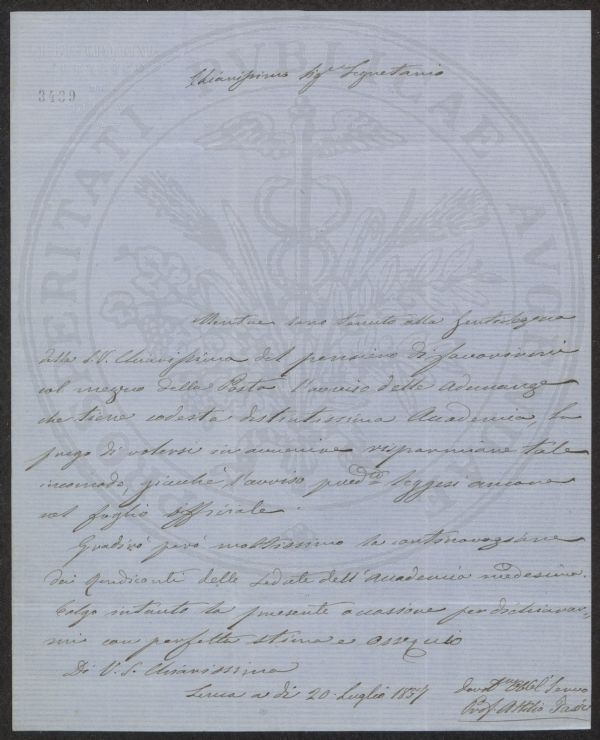 3489
Chiarissimo Sigr Segretario
Mentre sono tenuto alla gentilezza
della S.V. Chiarissima del pensiero di favorirmi
col mezzo della Posta l'avviso delle Adunanze
che tiene codesta distintissima Accademia la
prego di volersi in avvenire risparmiare tale
incomodo, giacché l'avviso predo leggesi ancora
nel foglio officiale.
Gradirò però moltissimo la continovazione
dei Rendiconti delle Sedute dell'Accademia medesima.
Colgo intanto la presente occasione per dichiarar-
mi con perfetta stima e ossequio
Di V. S. Chiarissima
a di 20 Luglio 1857
Servo
Prof. Attilio